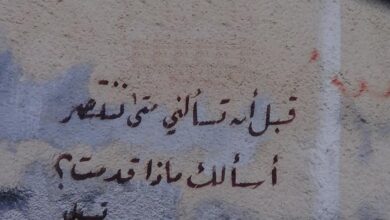 قبل أن تسألني متى ننتصر
أسألك ماذا قدمت؟